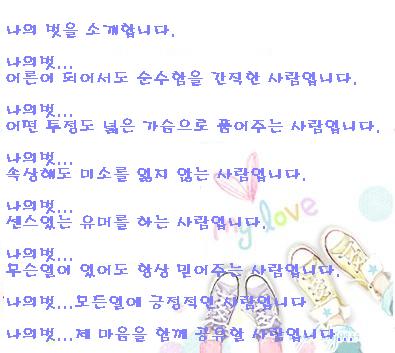 나의 벗을 소개합니다.
나의벗...
어른이 되어서도 순수함을 간직한 사람입니다.
나의벗...
어떤 투정도 넓은 가슴으로 품어주는 사람입니다.
나의벗...
속상해도 미소를 잃지 않는 사람입니다.
나의벗...
센스있는 유머를 하는 사람입니다.
my love
나의벗...
무슨일이 있어도 항상 믿어주는 사람입니다.
나의벗...모든일에 긍정적인 사람입니다
나의벗...제 마음을 함께 공유한 사람입니다...